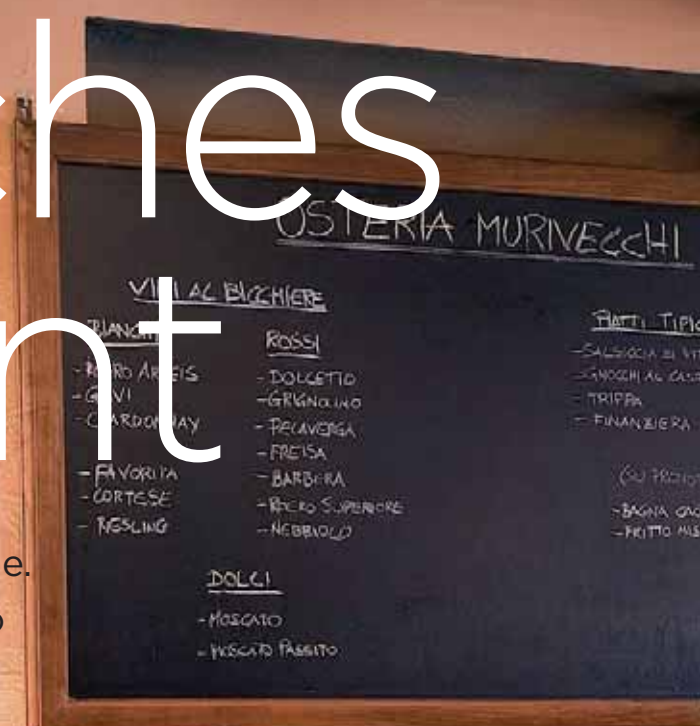 ches
nt
e.
OSTERIA MURIVECCHI
VINI AL BICCHIERE
BIANCHI
- ROERO ARNEIS
- GAVI
- CHARDONNAY
- FAVORITA
- CORTESE
- RIESLING
ROSSI
- DOLCETTO
- GRIGNOLINO
- PELAVERGA
- FREISA
- BARBERA
- ROERO SUPERIORE
- NEBBIOLO
DOLCI
- MOSCATO
- MOSCATO PASSITO
PIATTI TIPIC
- SALSICCIA DI
- GNOCCHI AL
- TRIPPA
- FINANZIERA
- BAGNA
- FRITTO MIS